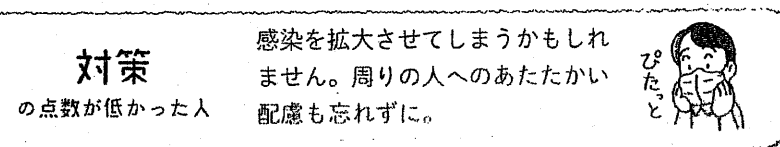 対策
の点数が低かった人
感染を拡大させてしまうかもしれ
ません。周りの人へのあたたかい
配慮も忘れずに。
ぴたっと